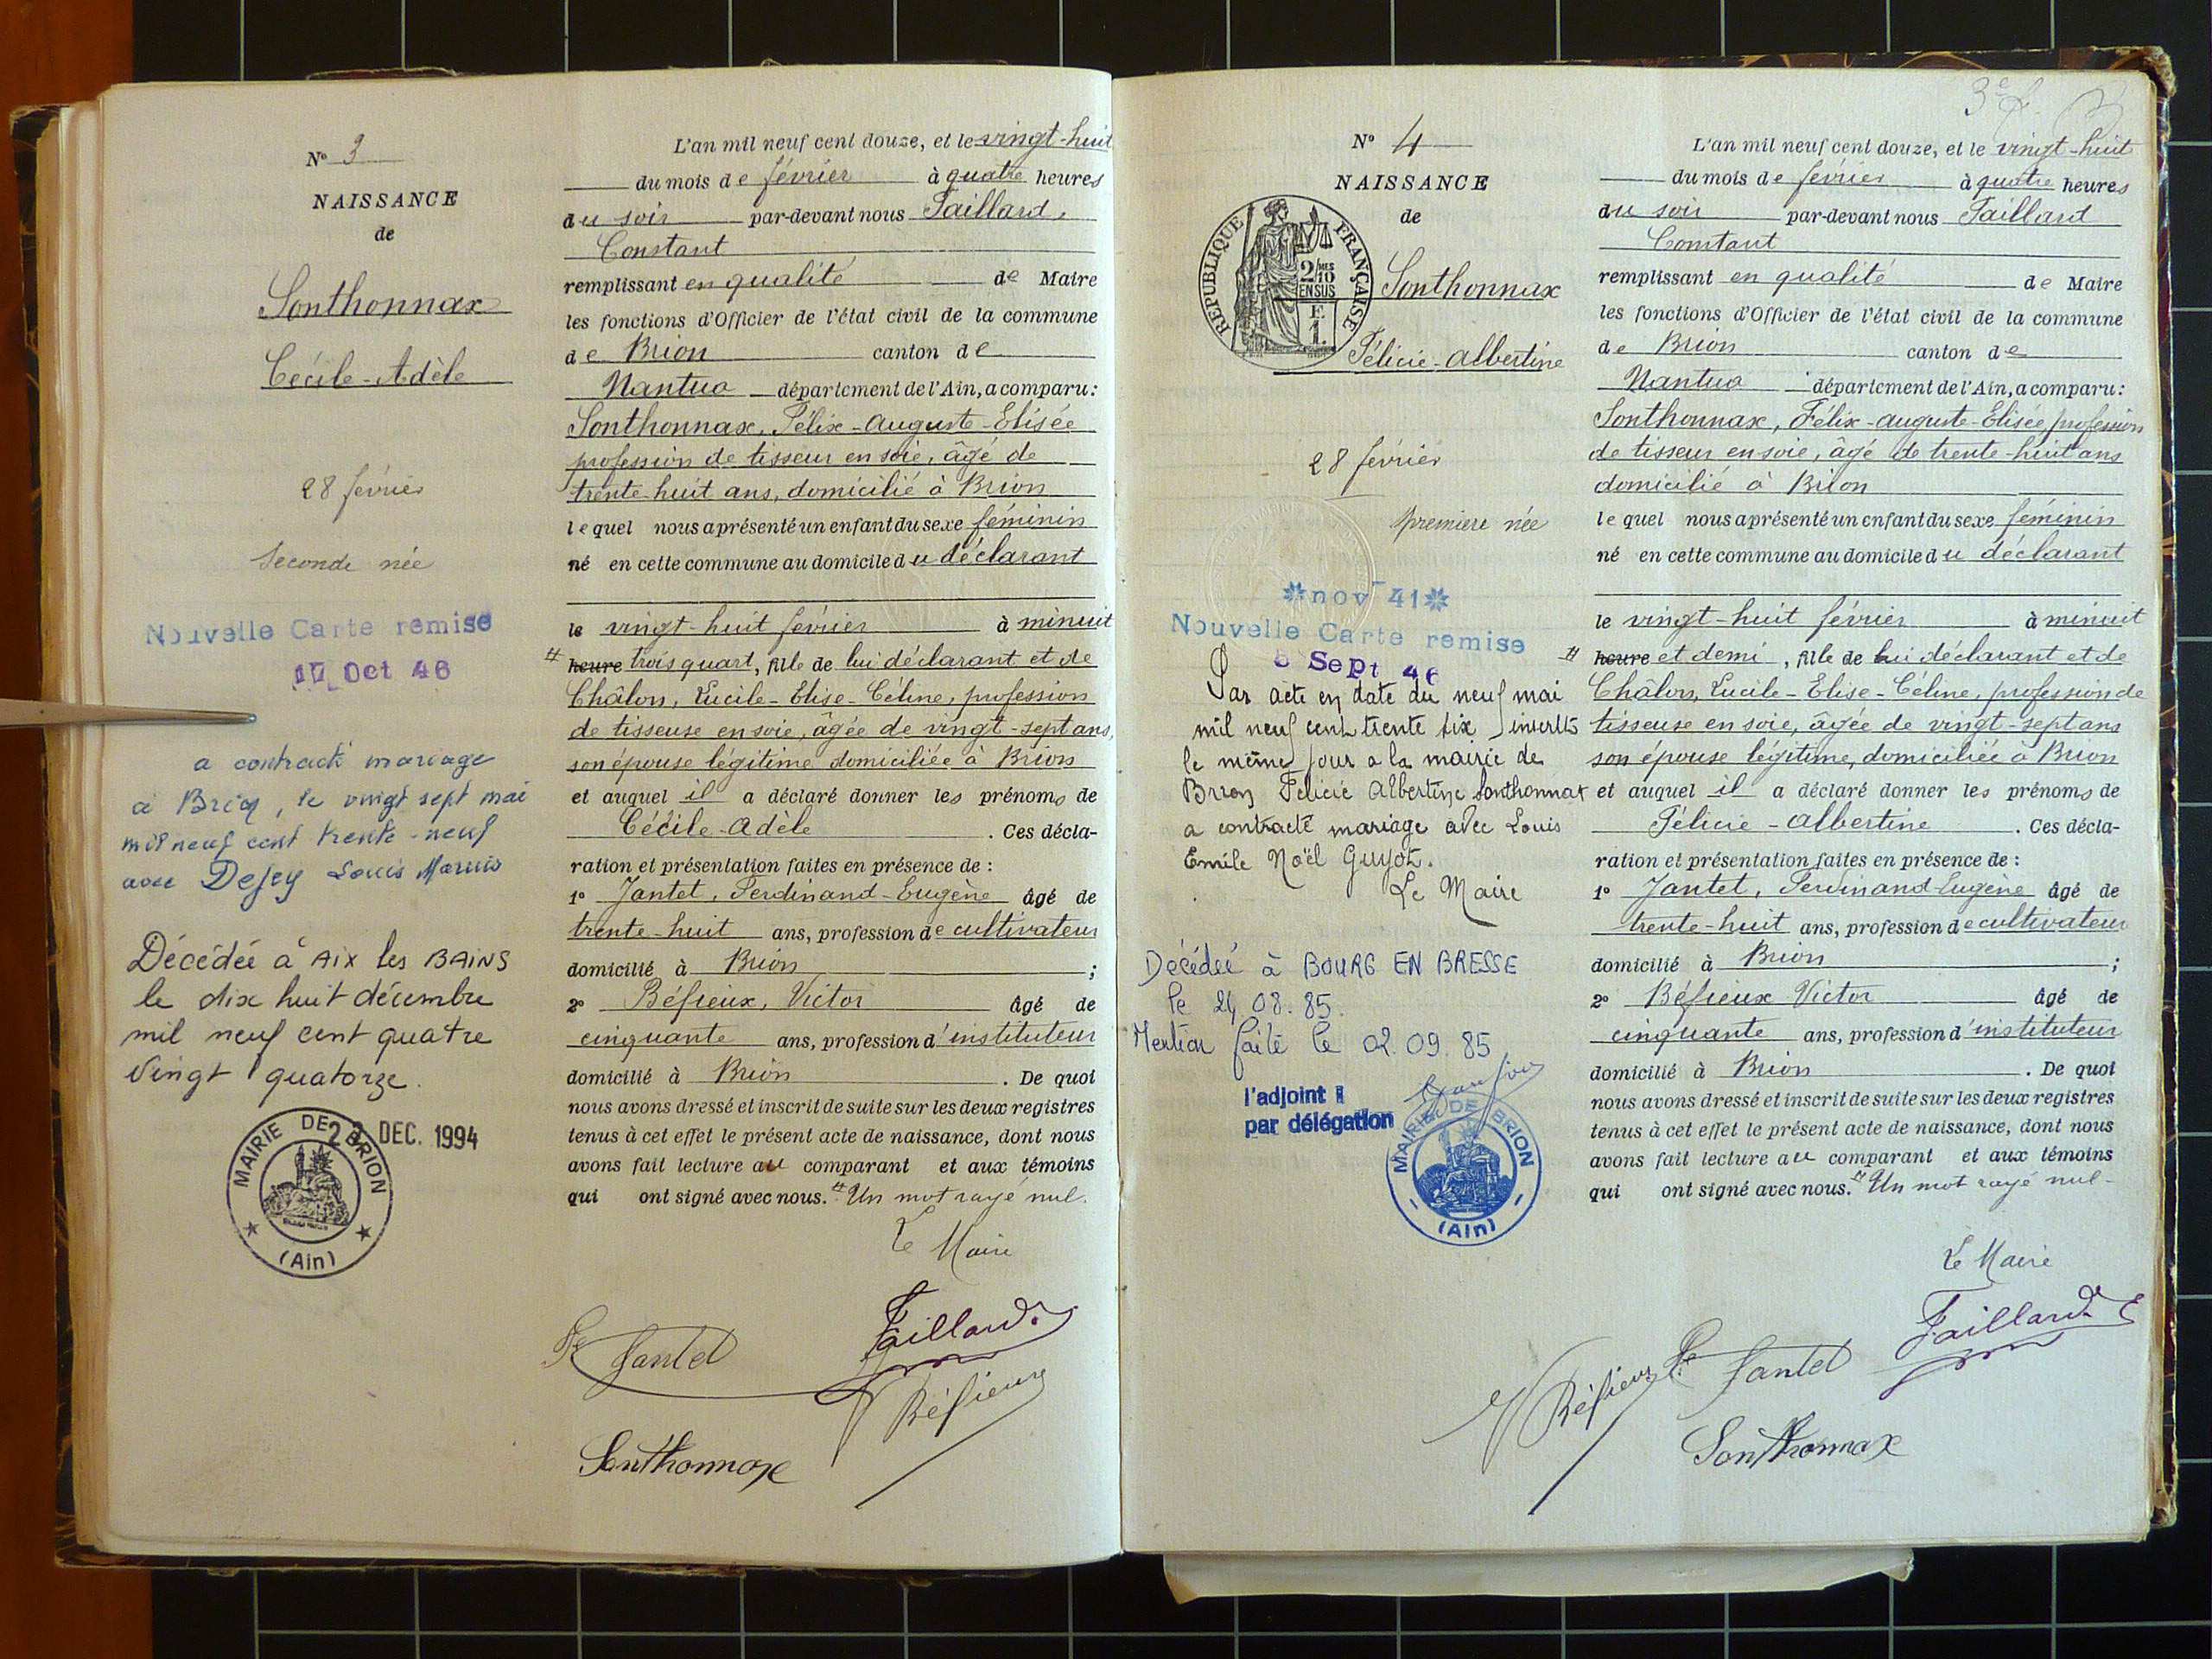 N° 3
NAISSANCE
de
Sonthonnax
Cécile-Adèle
28 février
Seconde née
Nouvelle Carte remise
17 Oct 46
a contracté mariage
à Brion, le vingt sept mai
mil neuf cent trente-neuf
avec Dejey Louis Marius
Décédée à AIX les BAINS
le dix huit décembre
mil neuf cent quatre
vingt quatorze.
DEC. 1994
MAIRIE DE BRION
(Ain)
L'an mil neuf cent douze, et le vingt-huit
du mois de février à quatre heures
du soir par-devant nous Taillard,
Constant
remplissant en qualité de Maire
les fonctions d'Officier de l'état civil de la commune
de Brion canton de
Nantua département de l'Ain, a comparu :
Sonthonnax, Félix-Auguste-Elisée
profession de tisseur en soie, âgé de
trente-huit ans, domicilié à Brion
lequel nous a présenté un enfant du sexe féminin
né en cette commune au domicile du déclarant
le vingt-huit février à minuit
# heure trois quart, fille de lui déclarant et de
Châlon, Lucile-Elise-Céline, profession
de tisseuse en soie, âgée de vingt-sept ans,
son épouse légitime domiciliée à Brion
et auquel il a déclaré donner les prénoms de
Cécile-Adèle. Ces décla-
ration et présentation faites en présence de :
1° Jantet, Ferdinand-Eugène âgé de
trente-huit ans, profession de cultivateur
domicilié à Brion ;
2° Béfieux, Victor âgé de
cinquante ans, profession d'instituteur
domicilié à Brion. De quoi
nous avons dressé et inscrit de suite sur les deux registres
tenus à cet effet le présent acte de naissance, dont nous
avons fait lecture au comparant et aux témoins
qui ont signé avec nous. # Un mot rayé nul.
Le Maire
Taillard
Fe Jantet
Béfieux
Sonthonnax
3e f.
N° 4
NAISSANCE
de
RÉPUBLIQUE FRANÇAISE
2/10 MES
EN SUS
F.
1.
Sonthonnax
Félicie-Albertine
28 février
première née
*nov 41*
Nouvelle Carte remise
Sept 46
Par acte en date du neuf mai
mil neuf cent trente six, inscrits
le même jour a la mairie de
Brion Félicie Albertine Sonthonnax
a contracté mariage avec Louis
Emile Noël Guyot.
Le Maire
Décédée à BOURG EN BRESSE
le 24 08. 85.
Mention faite le 02. 09. 85
l'adjoint
par délégation
MAIRIE DE BRION
(Ain)
L'an mil neuf cent douze, et le vingt-huit
du mois de février à quatre heures
du soir par-devant nous Taillard
Constant
remplissant en qualité de Maire
les fonctions d'Officier de l'état civil de la commune
de Brion canton de
Nantua département de l'Ain, a comparu :
Sonthonnax, Félix-Auguste-Elisée, profession
de tisseur en soie, âgé de trente-huit ans
domicilié à Brion
lequel nous a présenté un enfant du sexe féminin
né en cette commune au domicile du déclarant
le vingt-huit février à minuit
# heure et demi, fille de lui déclarant et de
Châlon, Lucile-Elise-Céline, profession de
tisseuse en soie, âgée de vingt-sept ans
son épouse légitime, domiciliée à Brion
et auquel il a déclaré donner les prénoms de
Félicie-Albertine. Ces décla-
ration et présentation faites en présence de :
1° Jantet, Ferdinand-Eugène âgé de
trente-huit ans, profession de cultivateur
domicilié à Brion ;
2° Béfieux Victor âgé de
cinquante ans, profession d'instituteur
domicilié à Brion. De quoi
nous avons dressé et inscrit de suite sur les deux registres
tenus à cet effet le présent acte de naissance, dont nous
avons fait lecture au comparant et aux témoins
qui ont signé avec nous. # Un mot rayé nul-
Le Maire
Taillard
Béfieux Fe Jantet
Sonthonnax